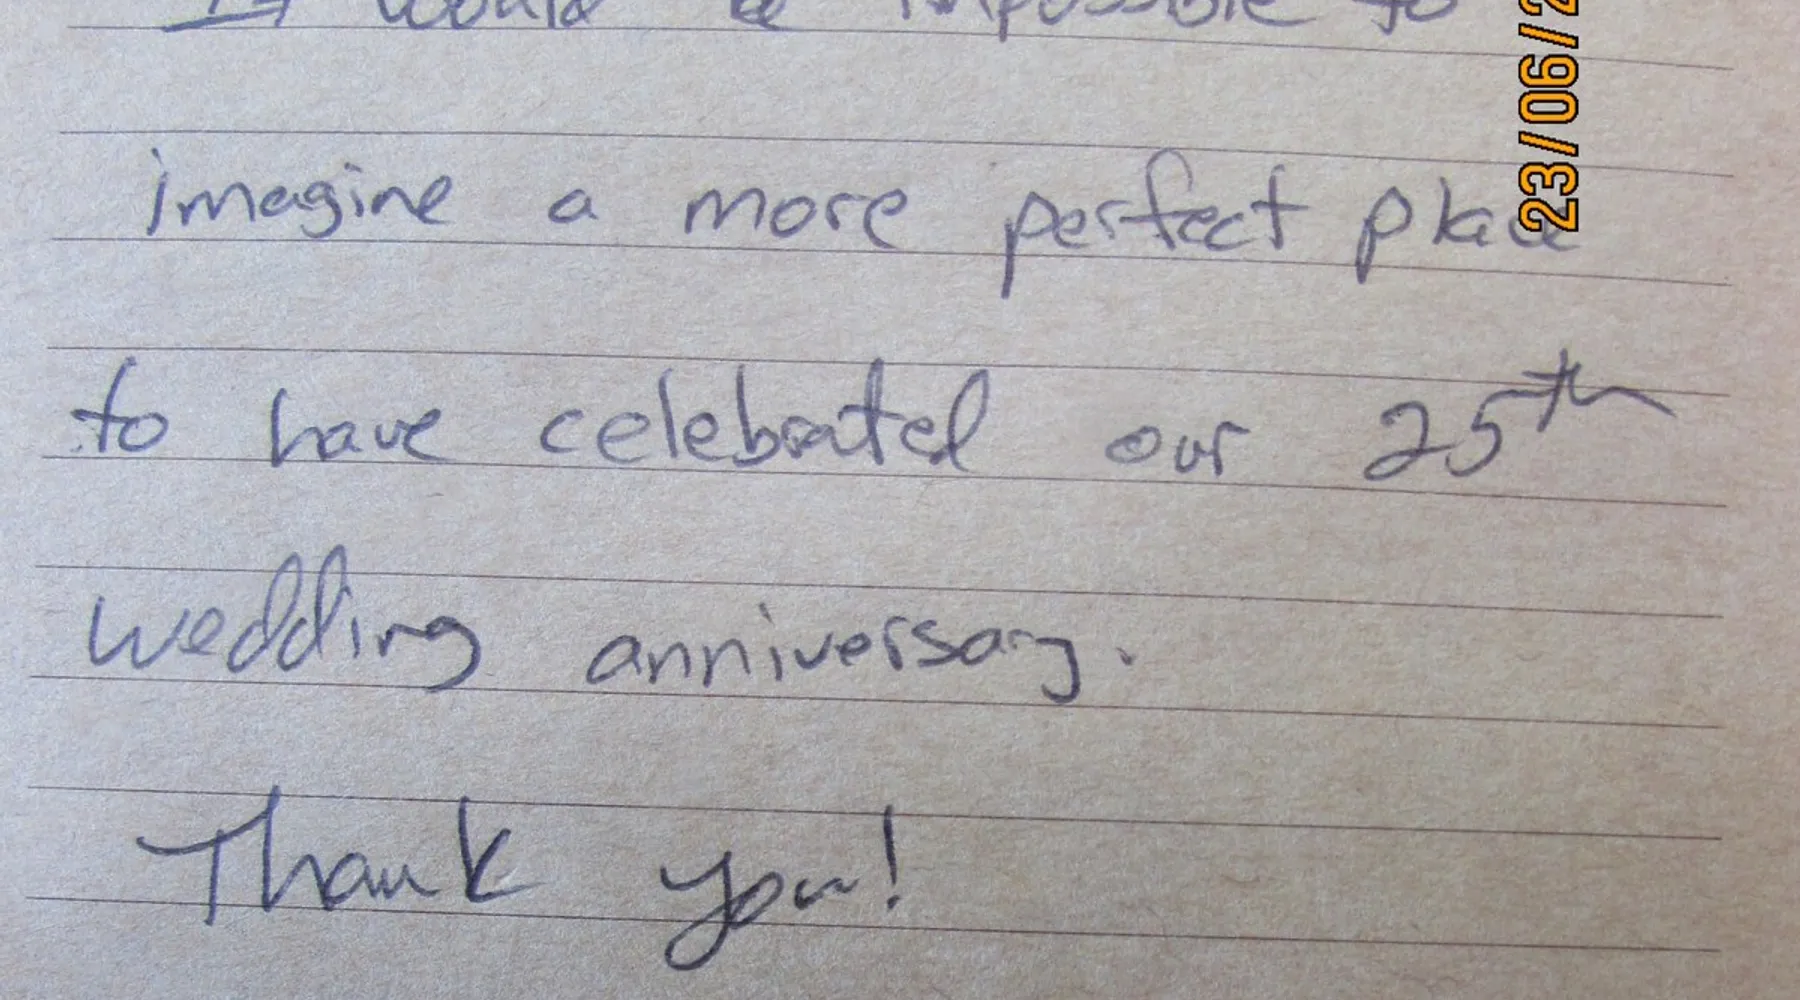 It would be impossible to
imagine a more perfect place
to have celebrated our 25th
wedding anniversary.
Thank you!
23/06/2